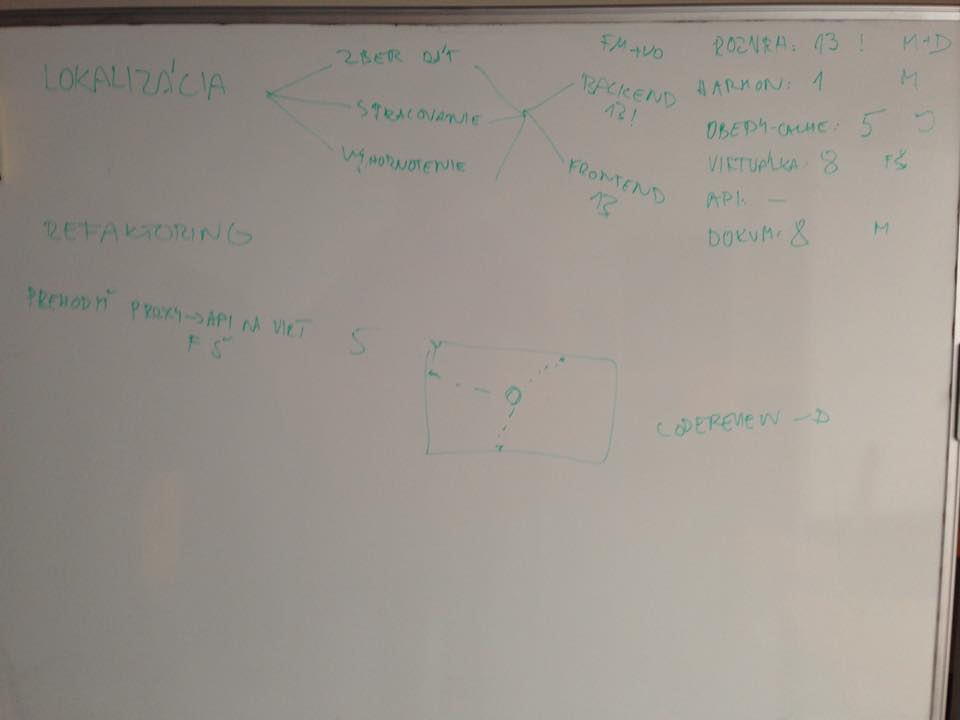 LOKALIZÁCIA
ZBER DÁT
SPRACOVANIE
VYHODNOTENIE
FM+VO
BACKEND
13!
FRONTEND
13
ROZVRH: 13 ! M+D
HARMON: 1 M
OBEDY-CACHE: 5
VIRTUÁLKA: 8 FŠ
API: —
DOKUM: 8 M
REFAKTORING
PREHODIŤ PROXY→API NA VIRT 5
FŠ
CODEREVIEW — D